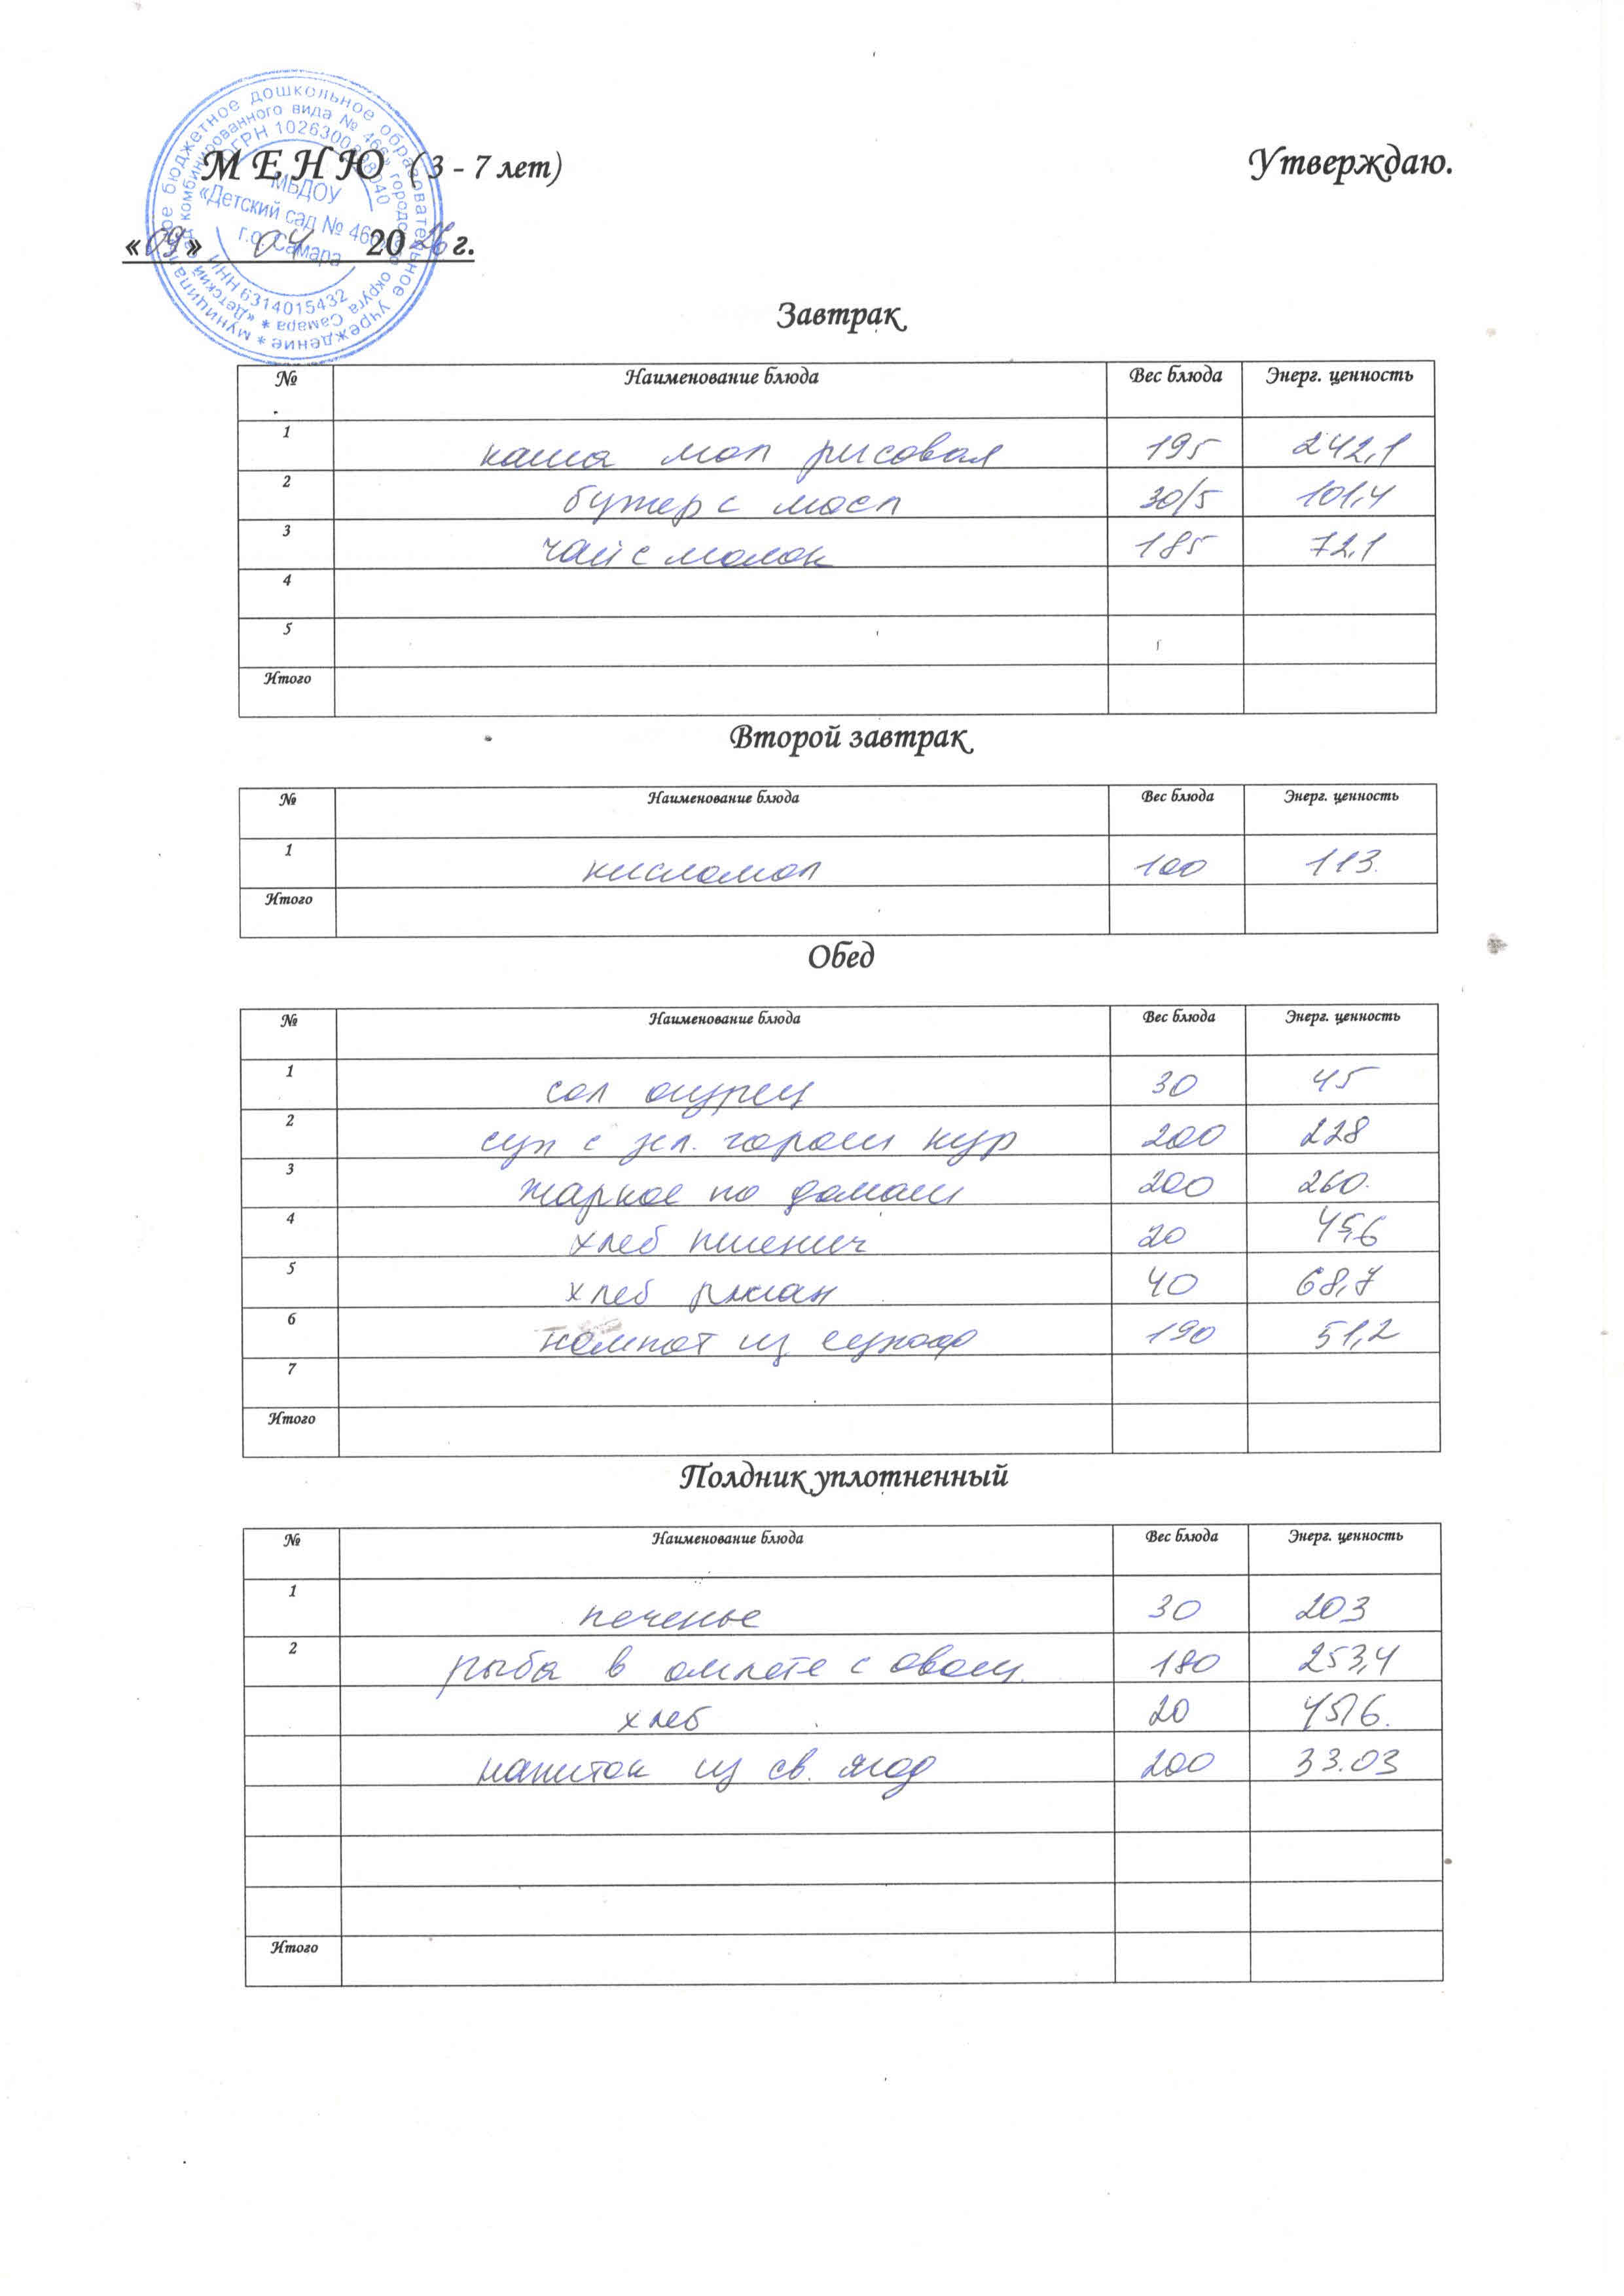 муниципальное бюджетное дошкольное образовательное учреждение *
«Детский сад комбинированного вида № 466» городского округа Самара *
ОГРН 1026300
МБДОУ
«Детский сад № 466»
г.о. Самара
ИНН 6314015432
МЕНЮ (3 - 7 лет) Утверждаю.
«09» 04 2026 г.
Завтрак
№ Наименование блюда Вес блюда Энерг. ценность
1 каша мол рисовая 195 242,1
2 бутер с масл 30/5 101,4
3 чай с молок 185 72,1
4
5
Итого
Второй завтрак
№ Наименование блюда Вес блюда Энерг. ценность
1 кисломол 100 113.
Итого
Обед
№ Наименование блюда Вес блюда Энерг. ценность
1 сол огурец 30 45
2 суп с зел. горош кур 200 228
3 жаркое по домаш 200 260.
4 хлеб пшенич 20 45,6
5 хлеб ржан 40 68,7
6 компот из сухоф 190 51,2
7
Итого
Полдник уплотненный
№ Наименование блюда Вес блюда Энерг. ценность
1 печенье 30 203
2 рыба в омлете с овощ. 180 253,4
хлеб 20 45,6.
напиток из св. ягод 200 33.03
Итого